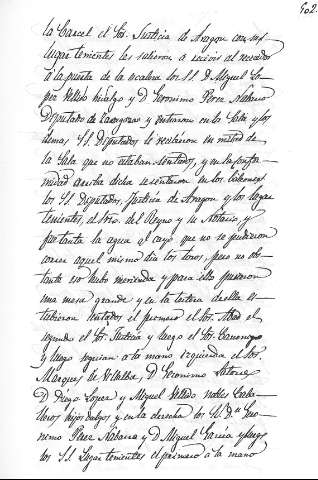 502.
la Carcel el Sor. Justicia de Aragon con sus
lugartenientes les salieron a recivir al recividor
á la puerta de la escalera los SS. D. Miguel Lo-
pez Tellido hidalgo y D. Geronimo Perez Nabarro
Diputados de Zaragoza y entraron en la Sala y los
demas SS. Diputados le recivieron en mitad de
la Sala que no estaban sentados, y en la confor-
midad arriba dicha se sentaron en los
los SS. Diputados, Justicia de Aragon y los lugar
tenientes, el del Reyno y su Notario, y
fue tanta la agua q. cayó que no se pudieron
correr aquel mismo dia los toros, pero no obs-
tante eso hubo merienda y para ello pusieron
una mesa grande y en la testera de ella es-
tubieron sentados el primero el Sor. Abad el
segundo el Sor. Justicia y luego el Sor. Canonigo
y luego seguian á la mano izquierda el Sor.
Marques de Villalba, D. Geronimo
D. Diego Lopez y Miguel Tellido nobles Caba-
lleros hijos dalgos y en la derecha los SS. Dn. Gero-
nimo Perez Nabarro y D. Miguel Garcia y luego
los SS. Lugartenientes el primero á la mano